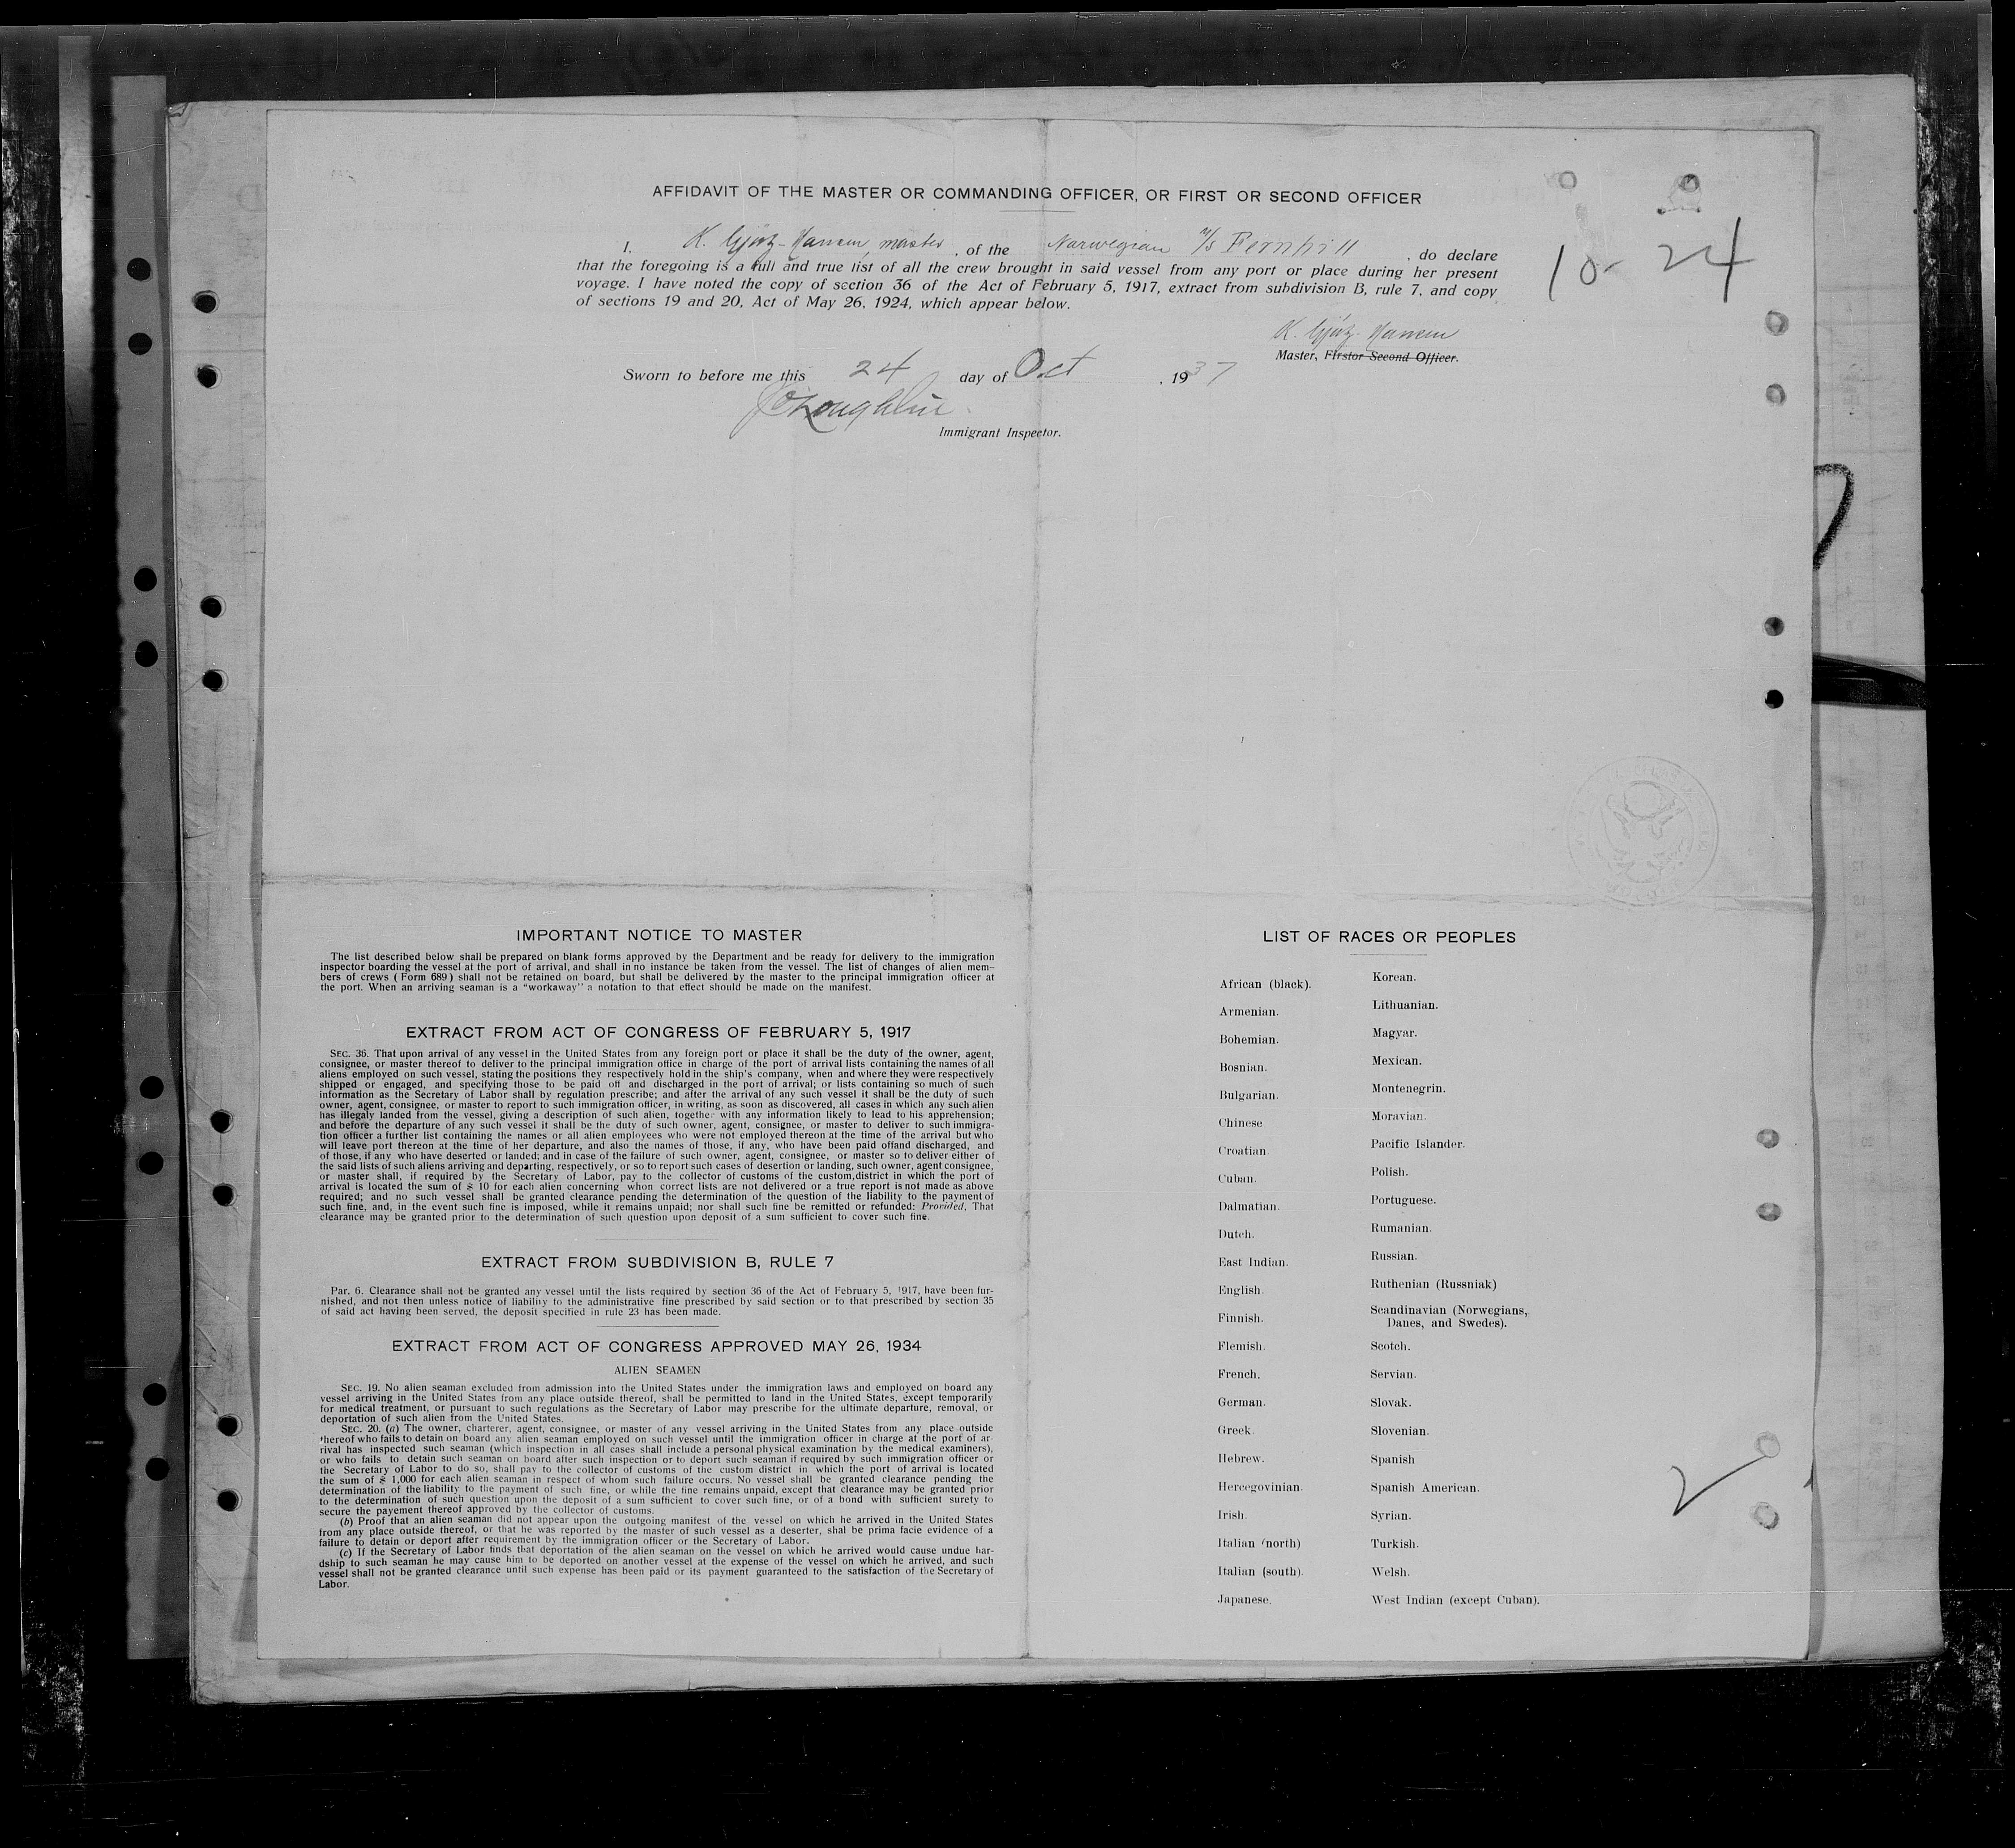 AFFIDAVIT OF THE MASTER OR COMMANDING OFFICER, OR FIRST OR SECOND OFFICER
10-24
I, K. Hansen, master, of the Norwegian M/S Fernhill, do declare
that the foregoing is a full and true list of all the crew brought in said vessel from any port or place during her present
voyage. I have noted the copy of section 36 of the Act of February 5, 1917, extract from subdivision B, rule 7, and copy
of sections 19 and 20, Act of May 26, 1924, which appear below.
K. Hansen
Master, Firstor Second Officer.
Sworn to before me this 24 day of Oct, 1937
O'Loughlin
Immigrant Inspector.
IMPORTANT NOTICE TO MASTER
The list described below shall be prepared on blank forms approved by the Department and be ready for delivery to the immigration
inspector boarding the vessel at the port of arrival, and shall in no instance be taken from the vessel. The list of changes of alien mem-
bers of crews (Form 689) shall not be retained on board, but shall be delivered by the master to the principal immigration officer at
the port. When an arriving seaman is a "workaway" a notation to that effect should be made on the manifest.
EXTRACT FROM ACT OF CONGRESS OF FEBRUARY 5, 1917
SEC. 36. That upon arrival of any vessel in the United States from any foreign port or place it shall be the duty of the owner, agent,
consignee, or master thereof to deliver to the principal immigration office in charge of the port of arrival lists containing the names of all
aliens employed on such vessel, stating the positions they respectively hold in the ship's company, when and where they were respectively
shipped or engaged, and specifying those to be paid off and discharged in the port of arrival; or lists containing so much of such
information as the Secretary of Labor shall by regulation prescribe; and after the arrival of any such vessel it shall be the duty of such
owner, agent, consignee, or master to report to such immigration officer, in writing, as soon as discovered, all cases in which any such alien
has illegaly landed from the vessel, giving a description of such alien, together with any information likely to lead to his apprehension;
and before the departure of any such vessel it shall be the duty of such owner, agent, consignee, or master to deliver to such immigra-
tion officer a further list containing the names or all alien employees who were not employed thereon at the time of the arrival but who
will leave port thereon at the time of her departure, and also the names of those, if any, who have been paid offand discharged, and
of those, if any who have deserted or landed; and in case of the failure of such owner, agent, consignee, or master so to deliver either of
the said lists of such aliens arriving and departing, respectively, or so to report such cases of desertion or landing, such owner, agent consignee,
or master shall, if required by the Secretary of Labor, pay to the collector of customs of the custom,district in which the port of
arrival is located the sum of $ 10 for each alien concerning whon correct lists are not delivered or a true report is not made as above
required; and no such vessel shall be granted clearance pending the determination of the question of the liability to the payment of
such fine, and, in the event such fine is imposed, while it remains unpaid; nor shall such fine be remitted or refunded: Provided, That
clearance may be granted prior to the determination of such question upon deposit of a sum sufficient to cover such fine.
EXTRACT FROM SUBDIVISION B, RULE 7
Par. 6. Clearance shall not be granted any vessel until the lists required by section 36 of the Act of February 5, 1917, have been fur-
nished, and not then unless notice of liability to the administrative fine prescribed by said section or to that prescribed by section 35
of said act having been served, the deposit specified in rule 23 has been made.
EXTRACT FROM ACT OF CONGRESS APPROVED MAY 26, 1934
ALIEN SEAMEN
SEC. 19. No alien seaman excluded from admission into the United States under the immigration laws and employed on board any
vessel arriving in the United States from any place outside thereof, shall be permitted to land in the United States, except temporarily
for medical treatment, or pursuant to such regulations as the Secretary of Labor may prescribe for the ultimate departure, removal, or
deportation of such alien from the United States.
SEC. 20. (a) The owner, charterer, agent, consignee, or master of any vessel arriving in the United States from any place outside
thereof who fails to detain on board any alien seaman employed on such vessel until the immigration officer in charge at the port of ar
rival has inspected such seaman (which inspection in all cases shall include a personal physical examination by the medical examiners),
or who fails to detain such seaman on board after such inspection or to deport such seaman if required by such immigration officer or
the Secretary of Labor to do so, shall pay to the collector of customs of the custom district in which the port of arrival is located
the sum of $ 1,000 for each alien seaman in respect of whom such failure occurs. No vessel shall be granted clearance pending the
determination of the liability to the payment of such fine, or while the fine remains unpaid, except that clearance may be granted prior
to the determination of such question upon the deposit of a sum sufficient to cover such fine, or of a bond with sufficient surety to
secure the payement thereof approved by the collector of customs.
(b) Proof that an alien seaman did not appear upon the outgoing manifest of the vessel on which he arrived in the United States
from any place outside thereof, or that he was reported by the master of such vessel as a deserter, shal be prima facie evidence of a
failure to detain or deport after requirement by the immigration officer or the Secretary of Labor.
(c) If the Secretary of Labor finds that deportation of the alien seaman on the vessel on which he arrived would cause undue har-
dship to such seaman he may cause him to be deported on another vessel at the expense of the vessel on which he arrived, and such
vessel shall not be granted clearance until such expense has been paid or its payment guaranteed to the satisfaction of the Secretary of
Labor.
LIST OF RACES OR PEOPLES
African (black).
Armenian.
Bohemian.
Bosnian.
Bulgarian.
Chinese
Croatian.
Cuban.
Dalmatian.
Dutch.
East Indian.
English.
Finnish.
Flemish.
French.
German.
Greek.
Hebrew.
Hercegovinian.
Irish.
Italian (north)
Italian (south).
Japanese.
Korean.
Lithuanian.
Magyar.
Mexican.
Montenegrin.
Moravian.
Pacific Islander.
Polish.
Portuguese.
Rumanian.
Russian.
Ruthenian (Russniak)
Scandinavian (Norwegians,
Danes, and Swedes).
Scotch.
Servian.
Slovak.
Slovenian.
Spanish
Spanish American.
Syrian.
Turkish.
Welsh.
West Indian (except Cuban).